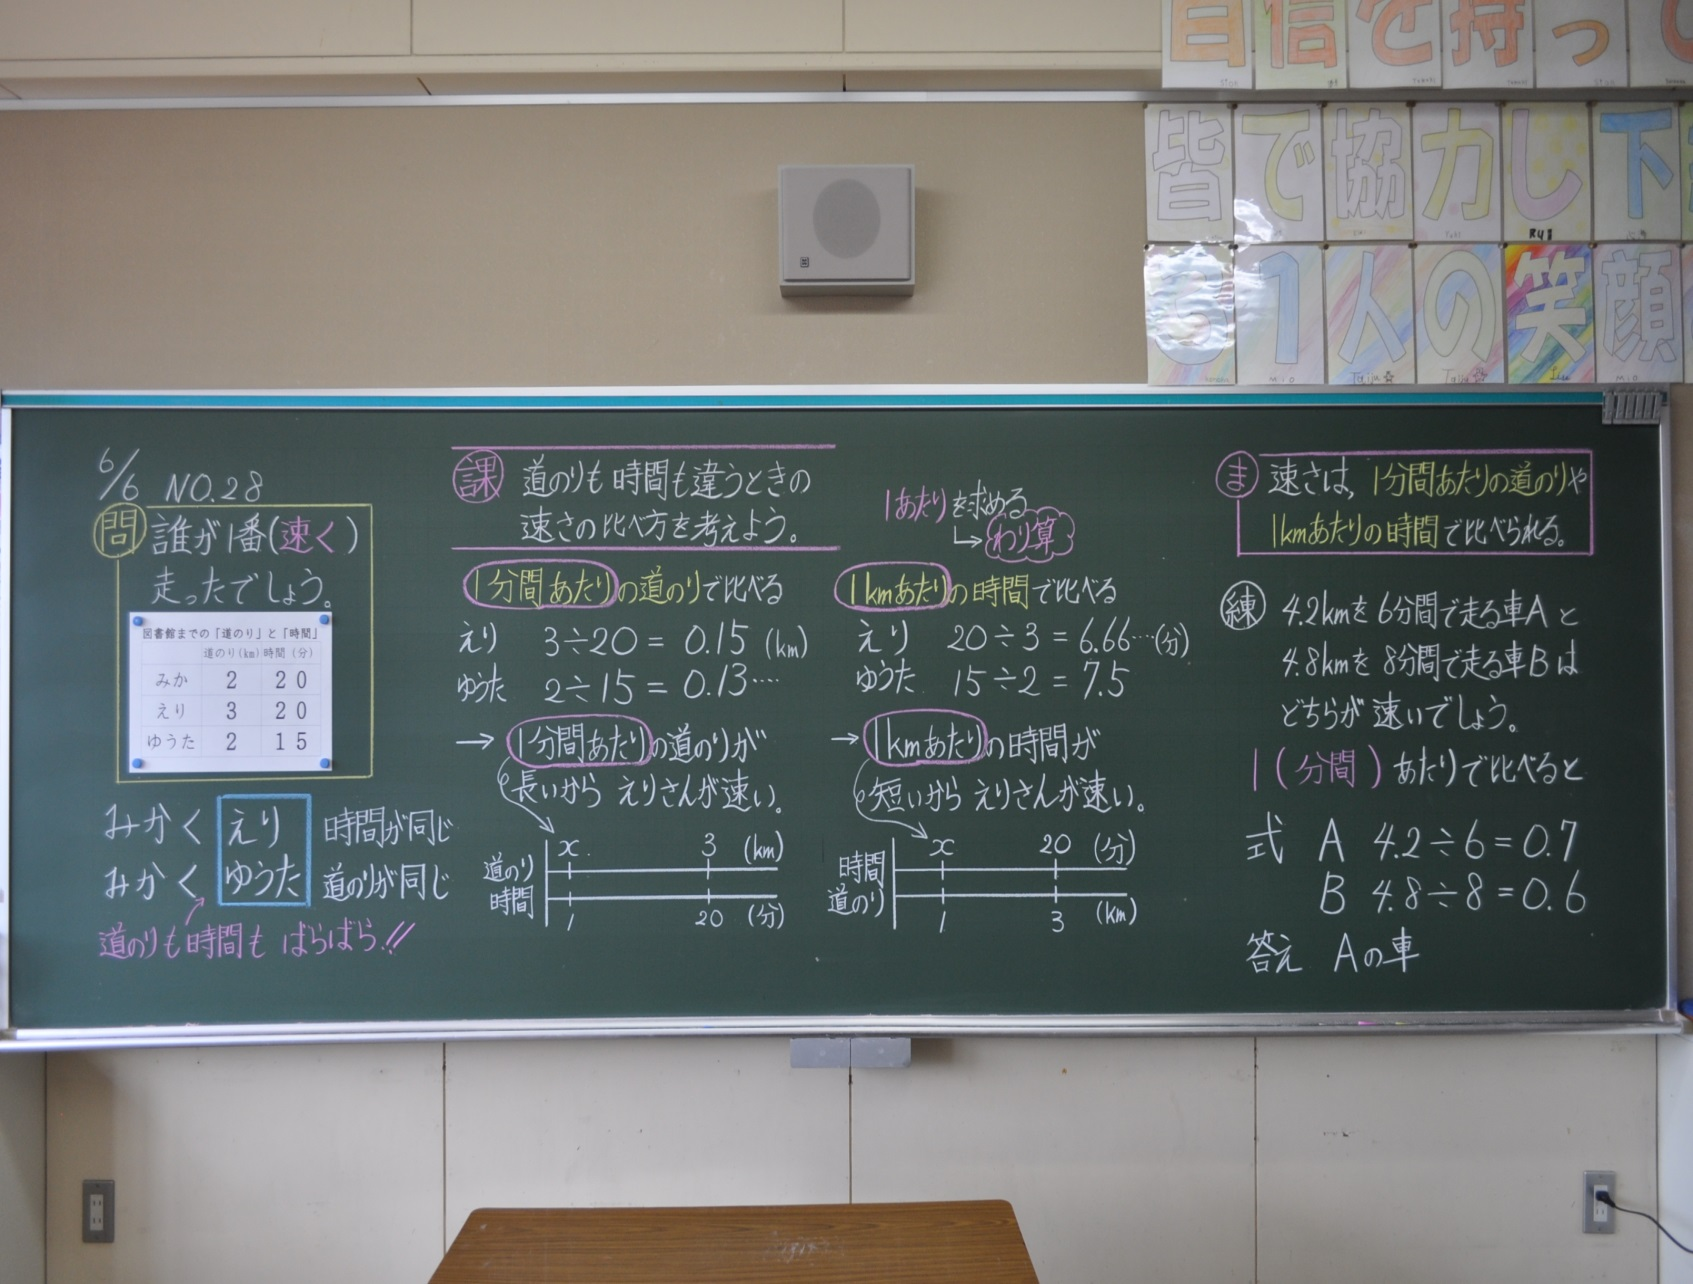 自信を持って
皆で協力し下
31人の笑顔
6/6 NO.28
問 誰が1番(速く)
走ったでしょう。
図書館までの「道のり」と「時間」
道のり(km) 時間(分)
みか 2 20
えり 3 20
ゆうた 2 15
みかくえり 時間が同じ
みかくゆうた 道のりが同じ
道のりも時間も ばらばら!!
課 道のりも時間も違うときの
速さの比べ方を考えよう。
1分間あたりの道のりで比べる
えり 3÷20=0.15(km)
ゆうた 2÷15=0.13‥‥
→1分間あたりの道のりが
長いから えりさんが速い。
x 3 (km)
道のり
時間
1 20 (分)
1あたりを求める
↳わり算
1kmあたりの時間で比べる
えり 20÷3=6.66…(分)
ゆうた 15÷2=7.5
→1kmあたりの時間が
短いから えりさんが速い。
x 20 (分)
時間
道のり
1 3 (km)
ま 速さは、1分間あたりの道のりや
1kmあたりの時間で比べられる。
練 4.2kmを6分間で走る車Aと
4.8kmを8分間で走る車Bは
どちらが速いでしょう。
1(分間)あたりで比べると
式 A 4.2÷6=0.7
B 4.8÷8=0.6
答え Aの車